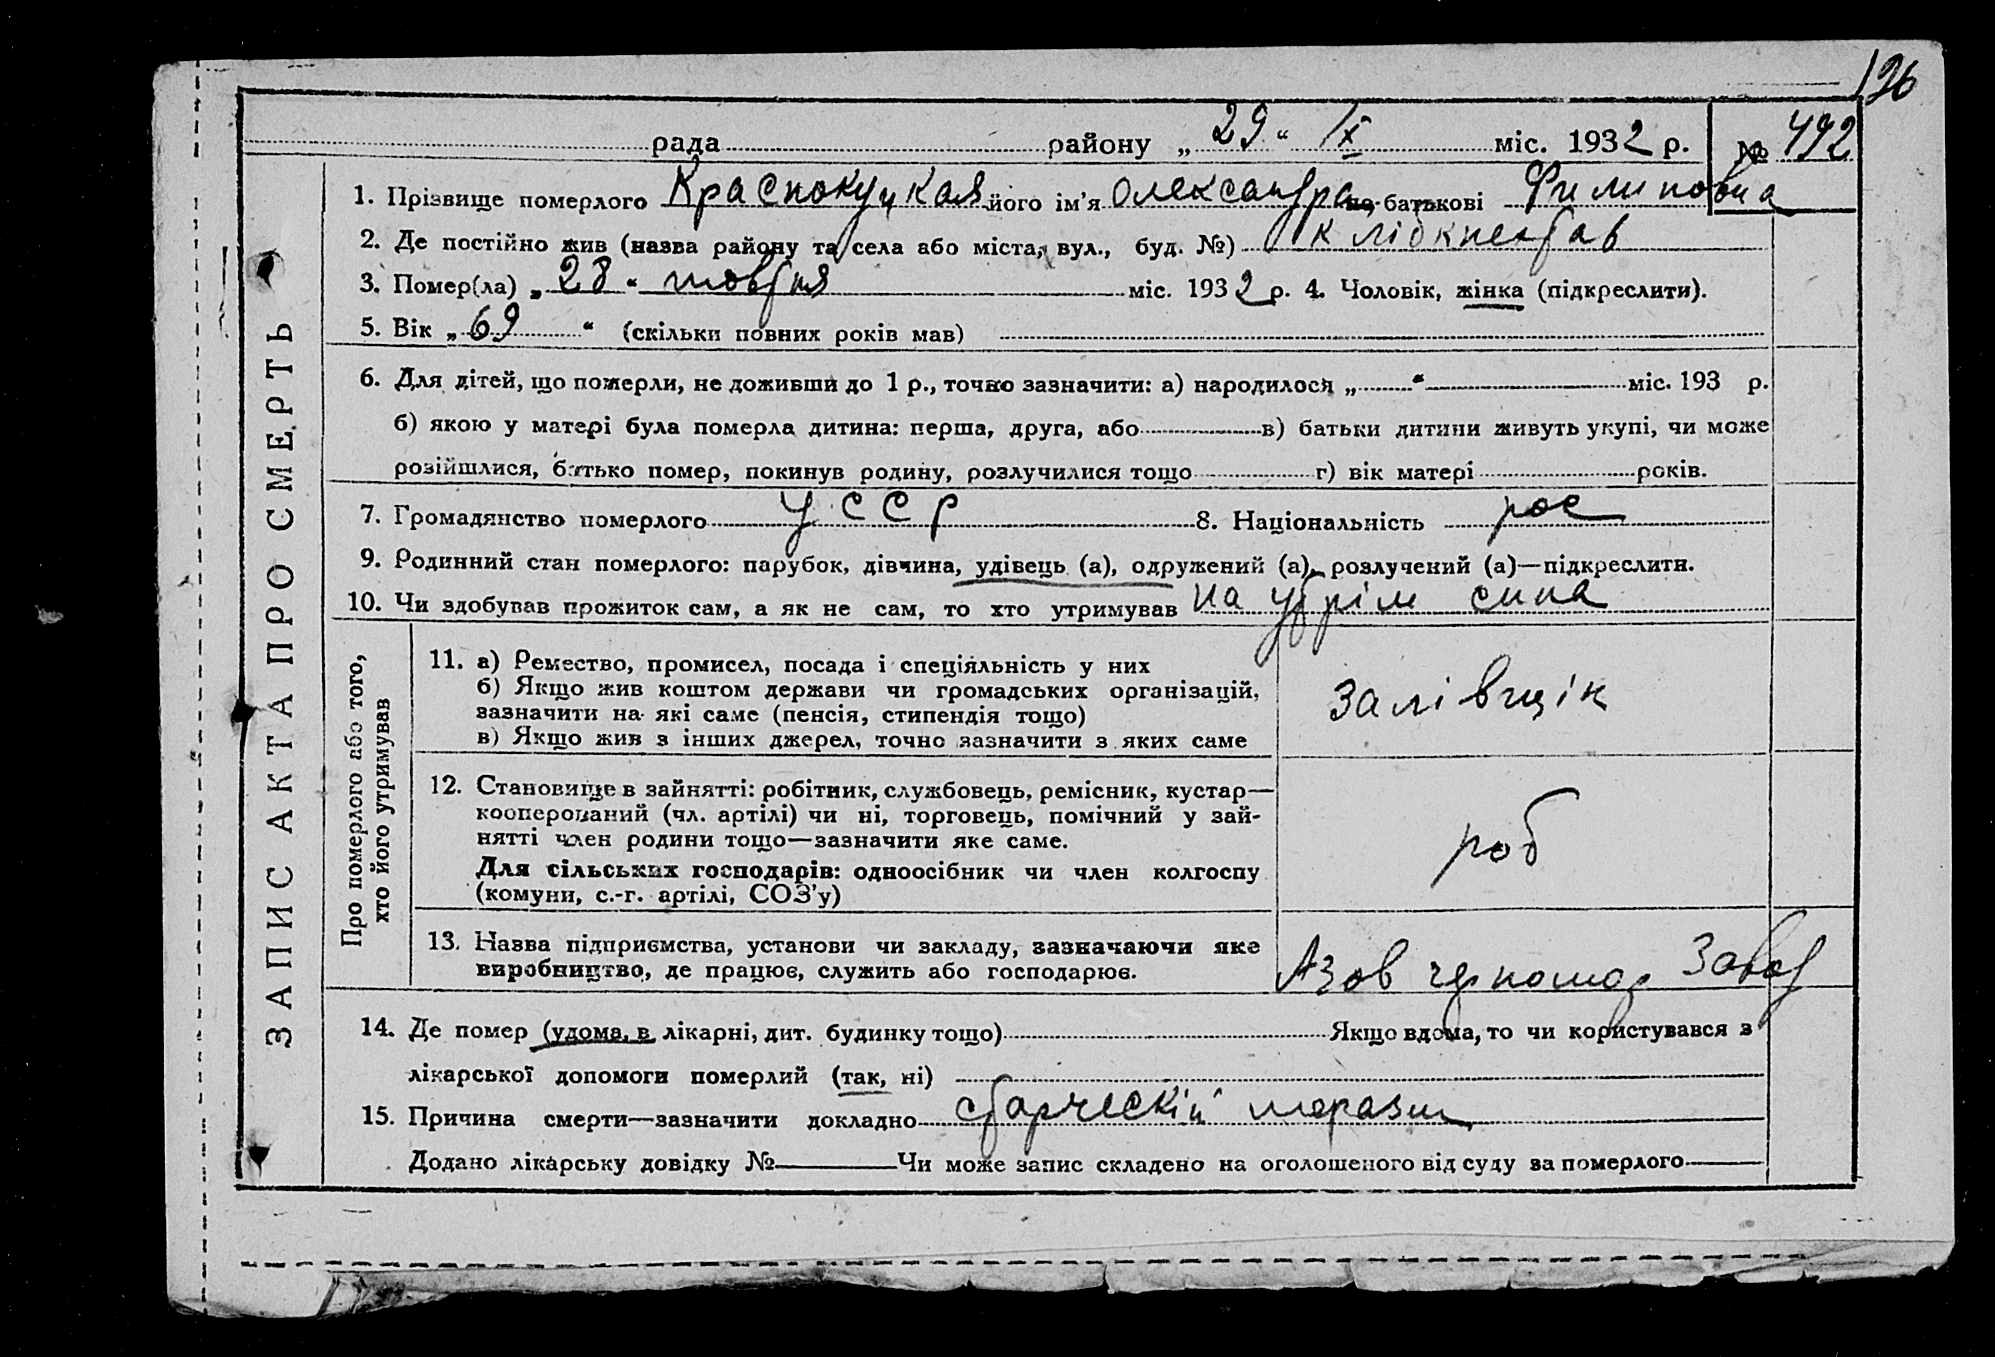 196
рада районуۤ „29“ IX міс. 1932 р. № 492
1. Прізвище померлого Краснокуцкая його ім'я Олександра по-батькові Филиповна
2. Де постійно жив (назва району та села або міста, вул., буд. №)
3. Помер(ла) „28“ жовтня міс. 1932 р. 4. Чоловік, жінка (підкреслити).
5. Вік „69“ (скільки повних років мав)
6. Для дітей, що померли, не доживши до 1 р., точно зазначити: а) народилося „ “ міс. 193 р.
б) якою у матері була померла дитина: перша, друга, або в) батьки дитини живуть укупі, чи може
розійшлися, батько помер, покинув родину, розлучилися тощо г) вік матері років.
7. Громадянство померлого УССР 8. Національність рос
9. Родинний стан померлого: парубок, дівчина, удівець (а), одружений (а), розлучений (а)—підкреслити.
10. Чи здобував прожиток сам, а як не сам, то хто утримував на утрім сина
ЗАПИС АКТА ПРО СМЕРТЬ
Про померлого або того,
хто його утримував
11. а) Ремество, промисел, посада і спеціяльність у них
б) Якщо жив коштом держави чи громадських організацій,
зазначити на які саме (пенсія, стипендія тощо)
в) Якщо жив з інших джерел, точно зазначити з яких саме
Залівщік
12. Становище в зайнятті: робітник, службовець, ремісник, кустар—
кооперований (чл. артілі) чи ні, торговець, помічний у зай-
нятті член родини тощо—зазначити яке саме.
Для сільських господарів: одноосібник чи член колгоспу
(комуни, с.-г. артілі, СОЗ'у)
роб
13. Назва підприємства, установи чи закладу, зазначаючи яке
виробництво, де працює, служить або господарює.
Азов черномор Завод
14. Де помер (удома, в лікарні, дит. будинку тощо) Якщо вдома, то чи користувався з
лікарської допомоги померлий (так, ні)
15. Причина смерти—зазначити докладно старческій маразм
Додано лікарську довідку № Чи може запис складено на оголошеного від суду за померлого